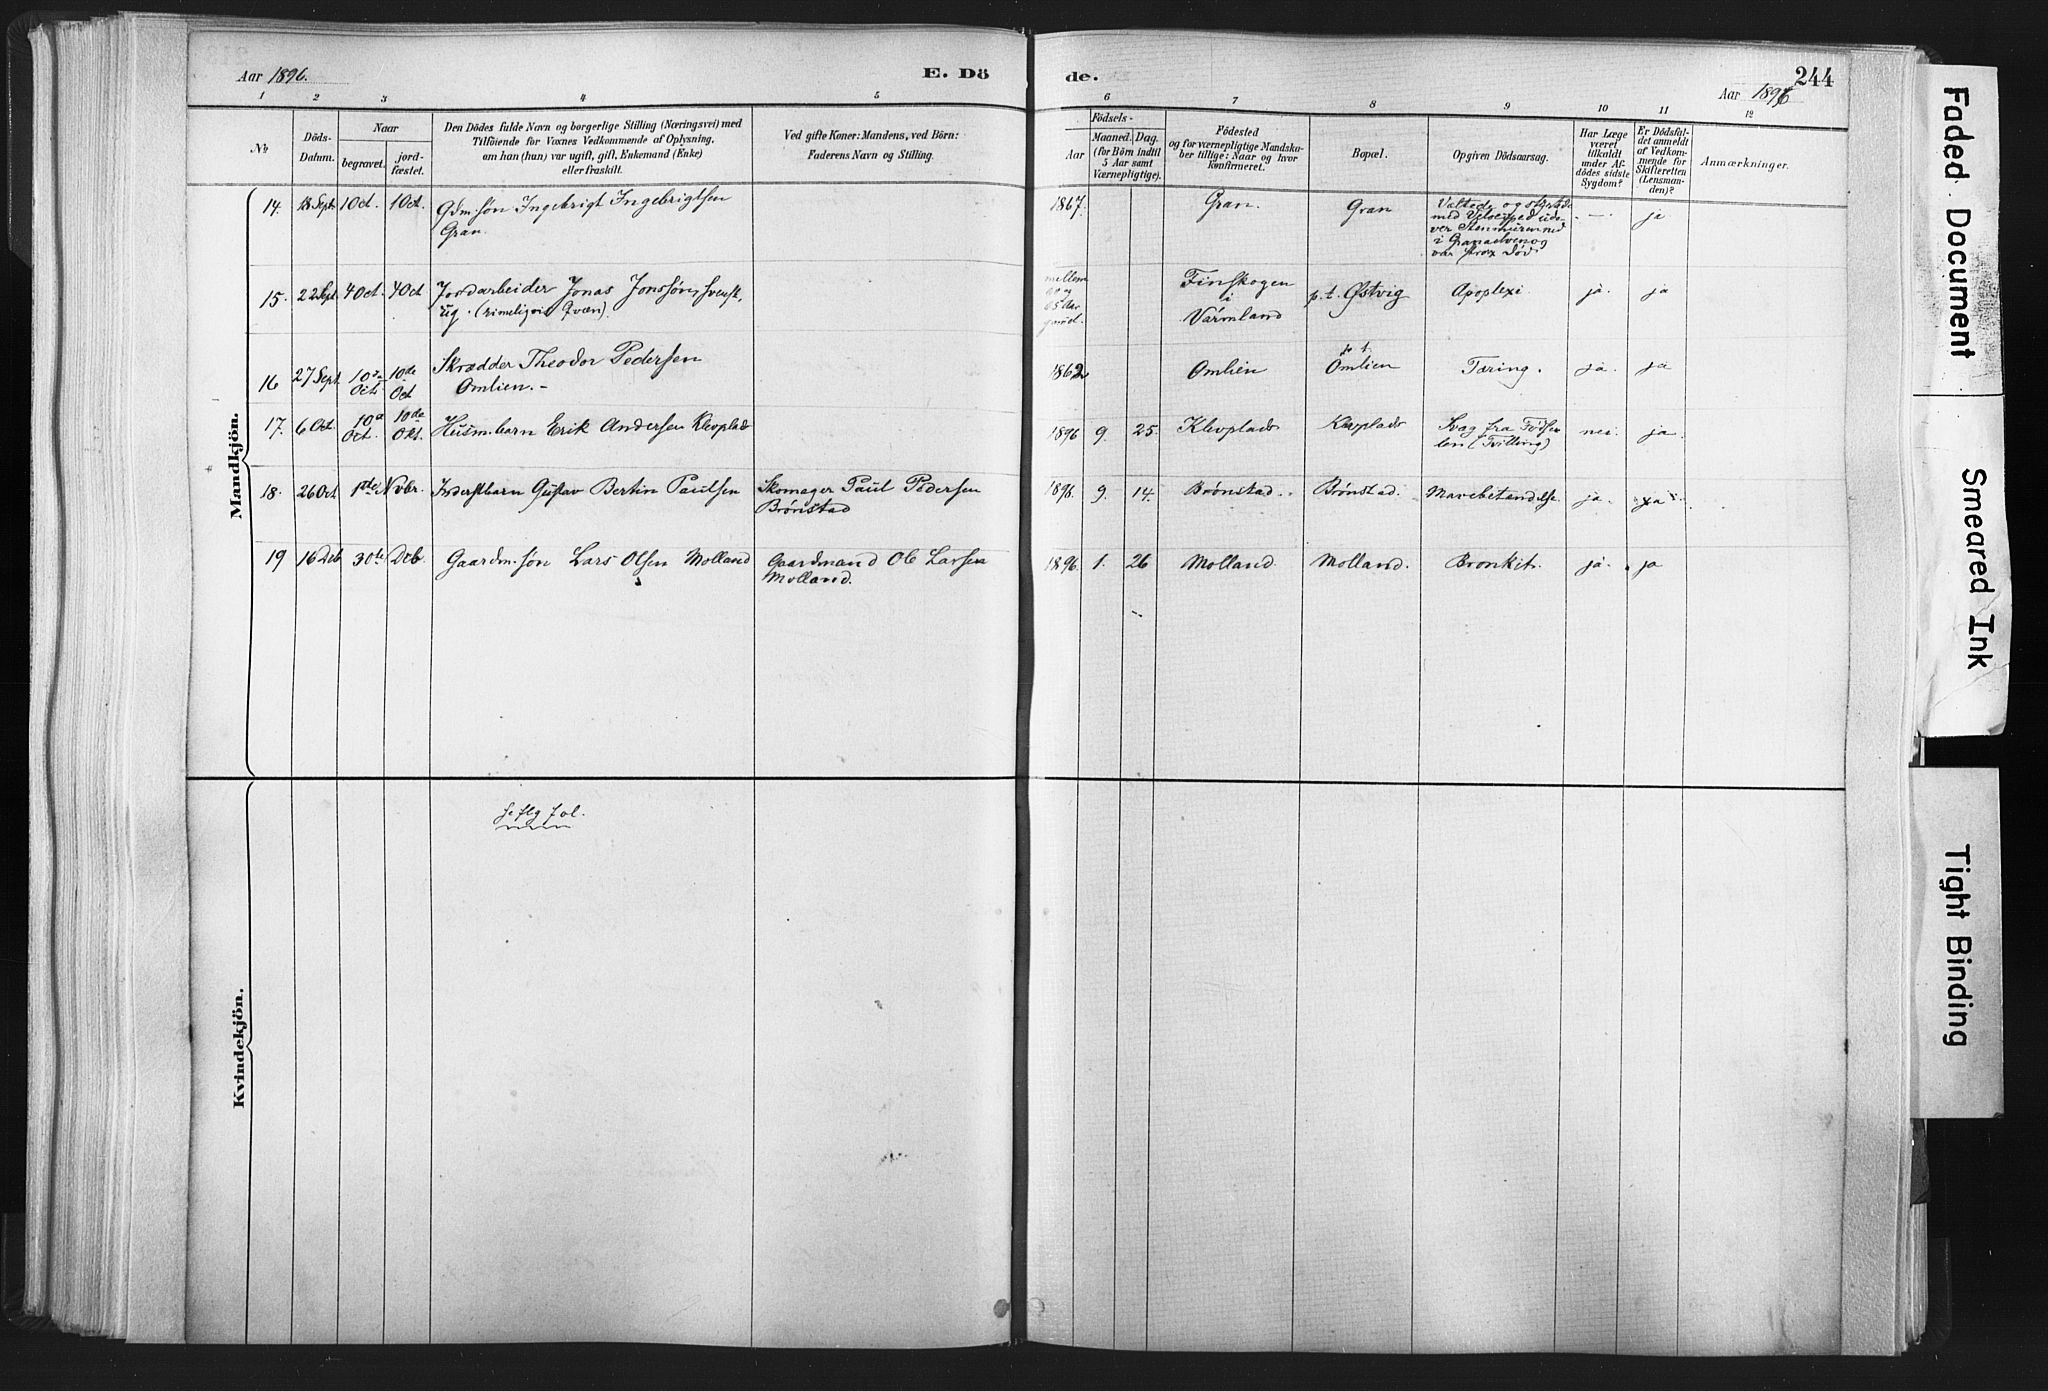 Aar 1896.
E. Dö
de.
244
Aar 1896
1 2 3 4 5 6 7 8 9 10 11 12
No
Döds-
Datum.
Naar
begravet.
jord-
fæstet.
Den Dödes fulde Navn og borgerlige Stilling (Næringsvei) med
Tilföiende for Voxnes Vedkommende af Oplysning,
om han (hun) var ugift, gift, Enkemand (Enke)
eller fraskilt.
Ved gifte Koner: Mandens, ved Börn:
Faderens Navn og Stilling.
Födsels-
Aar
Maaned. Dag.
(for Börn indtil
5 Aar samt
Værnepligtige).
Födested
og for værnepligtige Mandska-
ber tillige: Naar og hvor
konfirmeret.
Bopæl.
Opgiven Dödsaarsag.
Har Læge
været
tilkaldt
under Af-
dödes sidste
Sygdom?
Er Dödsfal-
det anmeldt
af Vedkom-
mende for
Skifteretten
(Lensman-
den)?
Anmærkninger.
Mandkjön.
14. 18 Sept. 1 Oct. 1 Oct. Gdm.søn Ingebrigt Ingebrigtsen
Gran.
1867. Gran. Gran
med Velociped ud-
over Stenmuren ned
i Granaelven og
var strax død.
— ja
15. 22 Sept. 4 Oct. 4 Oct Jordarbeider Jonas Jonssøn, svensk,
ug. (rimeligvis Qvæn).
mellem
60 og
65 Aar
gmel.
Finskogen
i
Värmland
p.t. Østvig Apoplexi ja. ja
16 27 Sept. 10de Oct. 10de Oct Skrædder Theodor Pedersen
Omlien. -
1862 Omlien p.t. Omlien Tæring. ja. ja
17. 6 Oct. 10de Oct. 10de Okt. Husm.barn Erik Andersen Klevplads
1896 9. 25. Klevplads Klevplads Svag fra Fødse-
len (Tvilling) nei. ja.
18. 26 Oct 1ste Nvbr. Inderstbarn Gustav Bertin Paulsen Skomager Paul Pedersen
Brønstad
1896. 9. 14. Brønstad. Brønstad. Mavebetændelse. ja. ja
19 16 Deb 30te Deb. Gaardm.søn Lars Olsen Molland Gaardmand Ole Larsen
Molland.
1896. 1. 26 Molland. Molland. Bronkit. ja. ja
Kvindekjön.
se flg fol.
Faded Document
Smeared Ink
Tight Binding